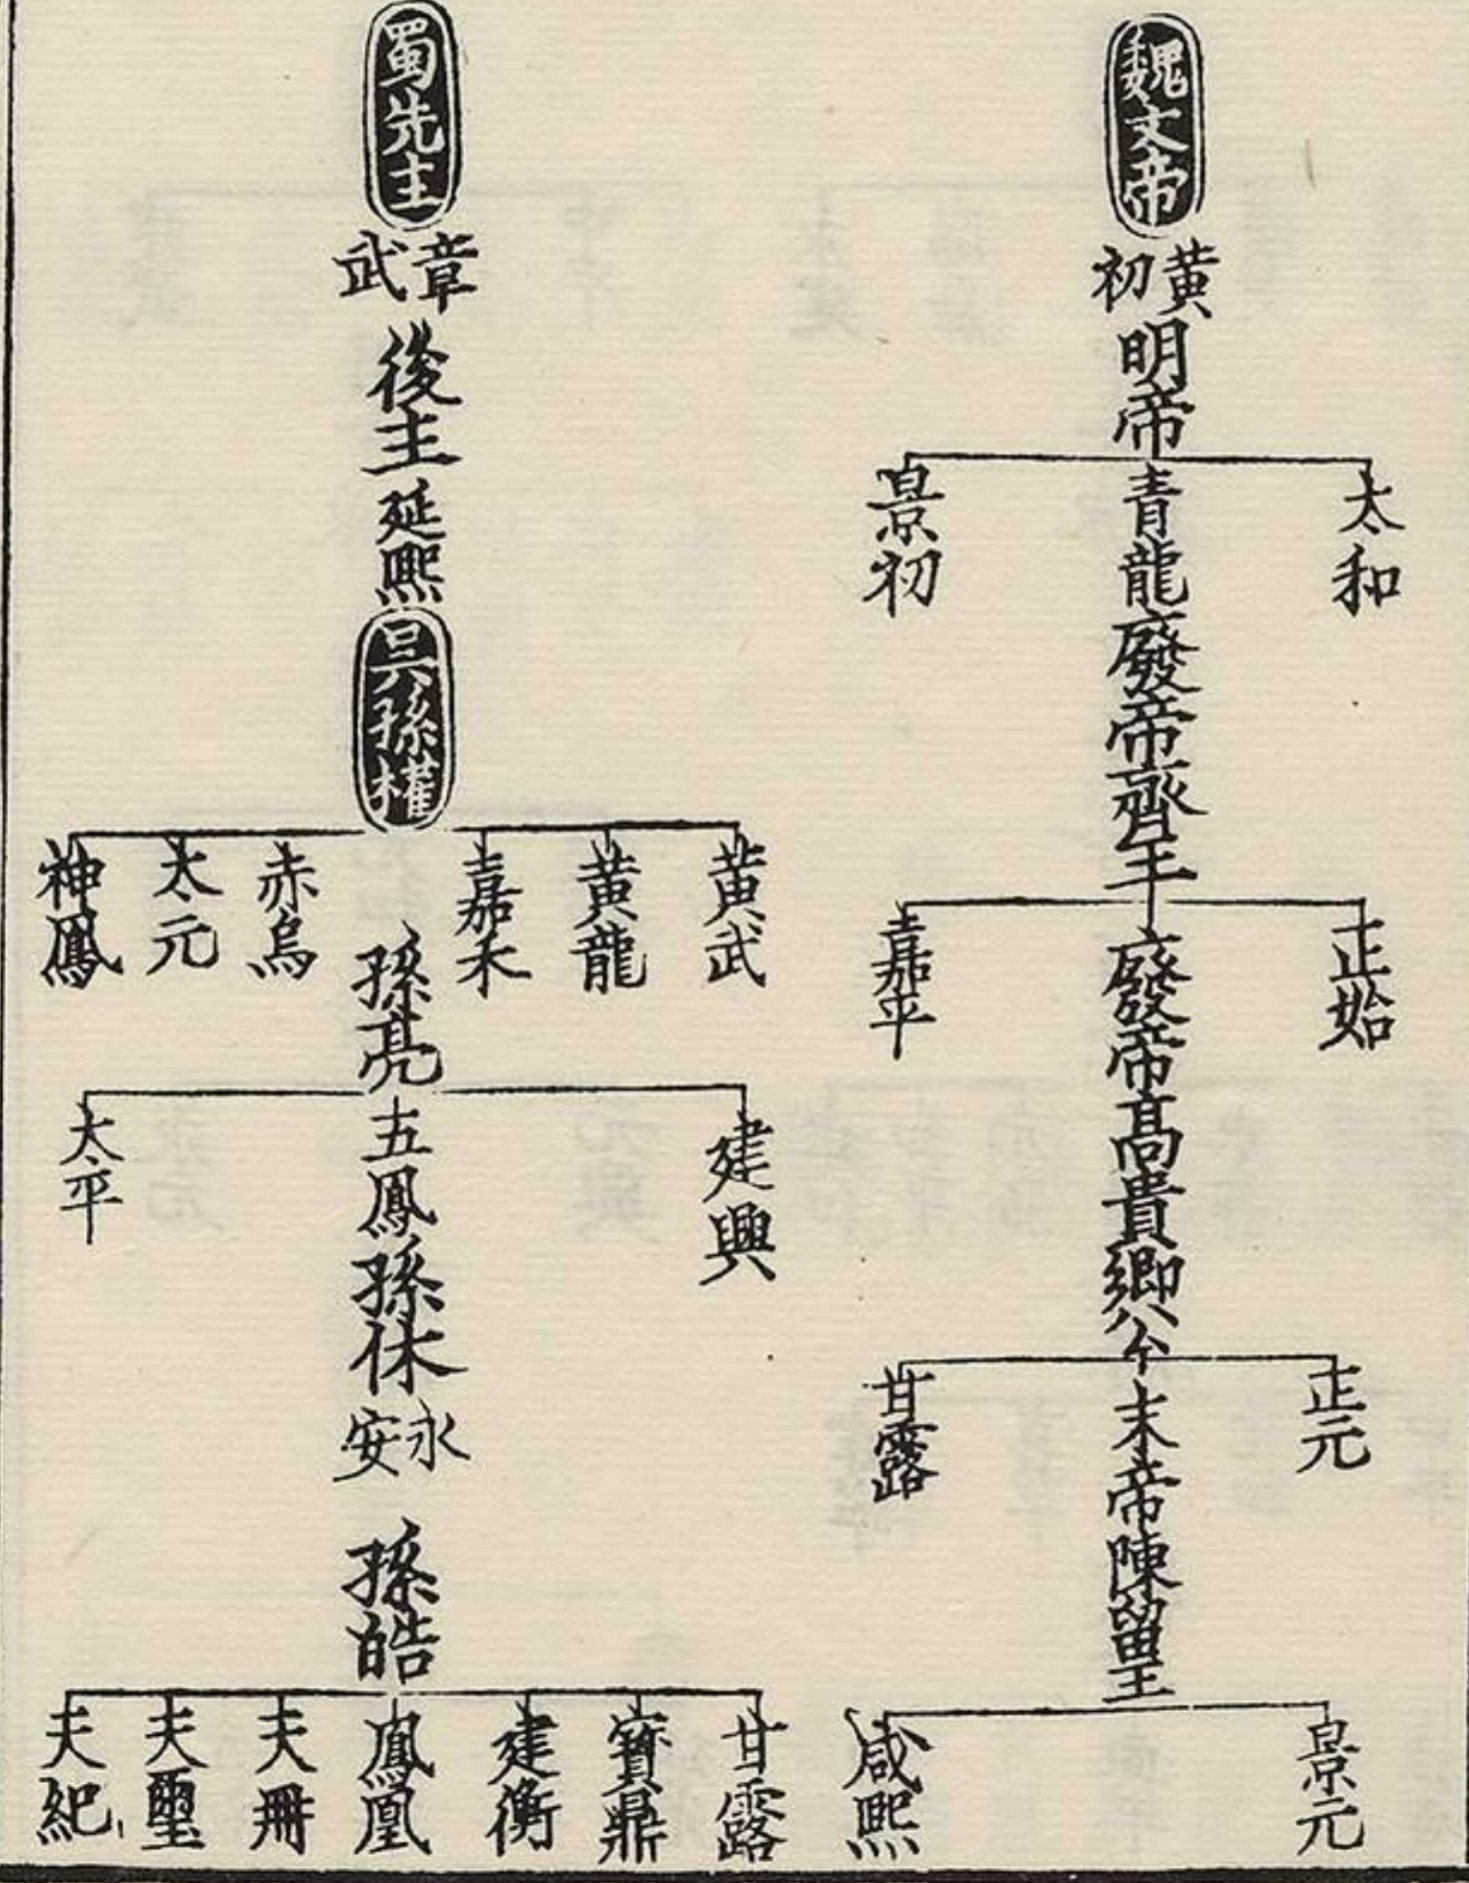 魏文帝
黄初
明帝
太和
青龍
景初
廢帝齊王
正始
嘉平
廢帝髙貴鄉公
正元
甘露
末帝陳留王
景元
咸熙
蜀先主
章武
後主
延熙
吳孫權
黄武
黄龍
嘉禾
赤烏
太元
神鳳
孫亮
建興
五鳳
太平
孫休
永安
孫皓
甘露
寳鼎
建衡
鳳凰
夫冊
夫璽
夫紀